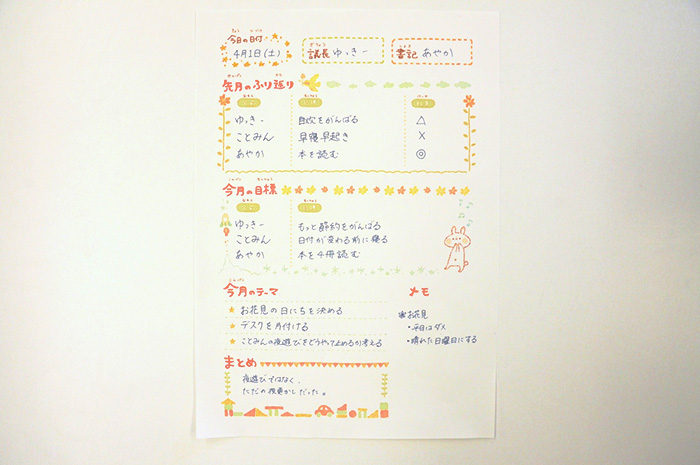 今日の日付
4月1日(土)
議長 ゆっきー
書記 あやか
先月のふり返り
ゆっきー 自炊をがんばる △
ことみん 早寝早起き ×
あやか 本を読む ◎
今月の目標
ゆっきー もっと節約をがんばる
ことみん 日付が変わる前に寝る
あやか 本を4冊読む
今月のテーマ
★ お花見の日にちを決める
★ デスクを片付ける
★ ことみんの夜遊びをどうやって止めるか考える
メモ
※お花見
・平日はダメ
・晴れた日曜日にする
まとめ
夜遊びではなく、
ただの夜更かしだった。